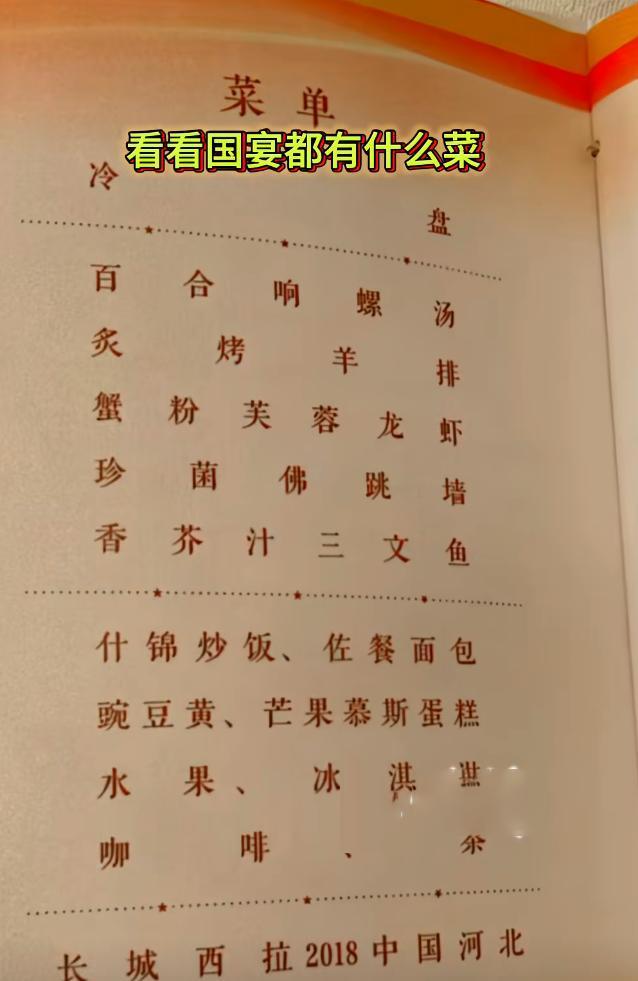 菜单
看看国宴都有什么菜
冷盘
百合响螺汤
炙烤羊排
蟹粉芙蓉龙虾
珍菌佛跳墙
香芥汁三文鱼
什锦炒饭、佐餐面包
豌豆黄、芒果慕斯蛋糕
水果、冰淇
咖啡、
长城西拉2018中国河北